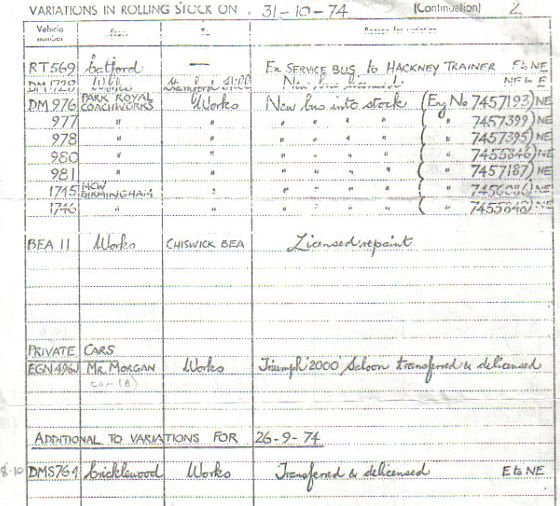 VARIATIONS IN ROLLING STOCK ON . 31-10-74 (Continuation) 2.
Vehicle number From To Reason for variation
RT 569 Catford — Ex SERVICE BUS to HACKNEY TRAINER E to NE
DM 1728 Works Stamford Hill New bus licensed NE to E
DM 976 PARK ROYAL COACHWORKS Works New bus into stock (Eng No 7457193) NE
977 " " " " " " ( " 7457399) NE
978 " " " " " " ( " 7457395) NE
980 " " " " " " ( " 7455846) NE
981 " " " " " " ( " 7457187) NE
1745 MCW BIRMINGHAM " " " " " ( " ) NE
1746 " " " " " " ( " ) NE
BEA 11 Works CHISWICK BEA Licensed repaint
PRIVATE CARS
EGN 496J Mr. MORGAN Works Triumph '2000' Saloon transferred & delicensed
ADDITIONAL TO VARIATIONS FOR 26-9-74
8.10 DMS 764 Cricklewood Works Transferred & delicensed E to NE